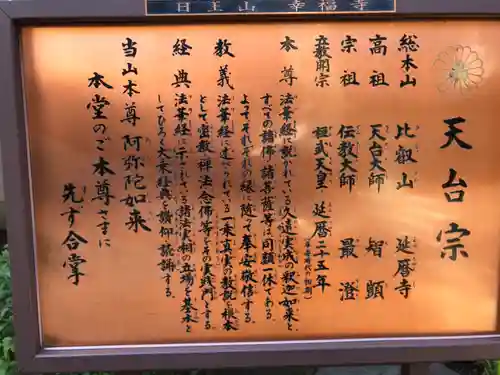 日王山 幸福寺
天台宗
総本山 比叡山 延暦寺
高祖 天台大師 智顗
宗祖 伝教大師 最澄
立教開宗 桓武天皇 延暦二十五年
本尊 法華経に説かれている久遠実成の釈迦如来と、
すべての諸仏諸菩薩等は同願一体である。
よってそれぞれの縁に随って奉安敬信する。
教義 法華経に述べられている一乗真実の教説を根本
として密教禅法念佛等をその実践門とする
経典 法華経に示されている諸法実相の立場を基本と
してひろく大乗経典を讃仰読誦する。
当山本尊 阿弥陀如来
本堂のご本尊さまに
先ず合掌